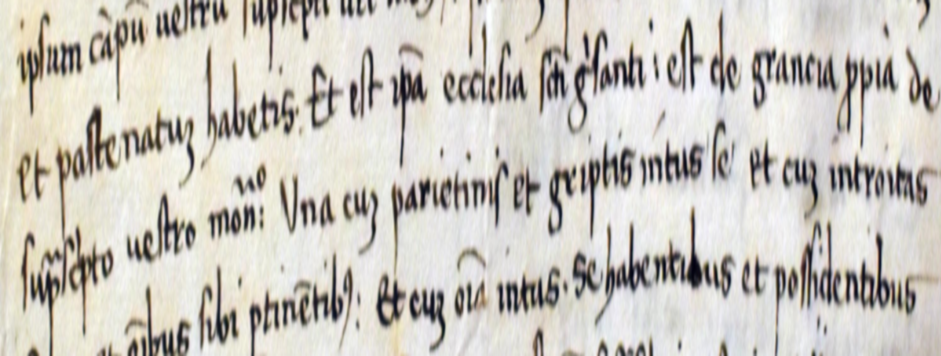 ipsum cāpū uestrū
et pastenatuȝ habetis. Et est ipā ecclesia sc̄i gsanti: est de grancia ppia de
sup̄scpto uestro mon: uo Una cuȝ parietinis et griptis intus se et cuȝ introitas
oībus sibi ptinētib9: Et cuȝ oīa intus. se habentibus et possidentibus